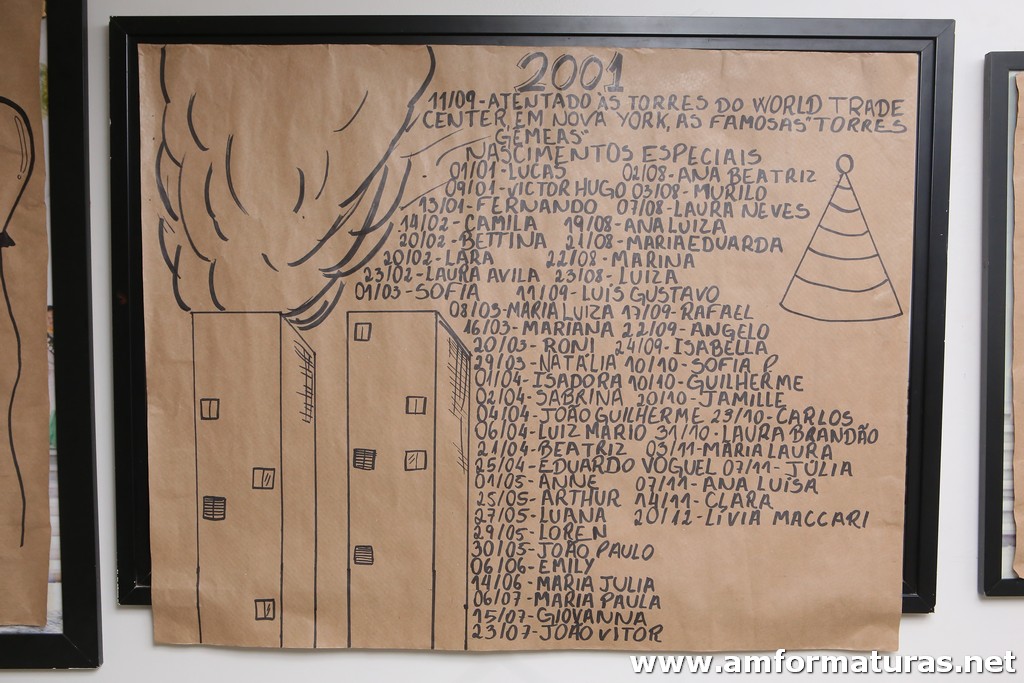 2001
11/09-ATENTADO ÀS TORRES DO WORLD TRADE
CENTER, EM NOVA YORK, AS FAMOSAS "TORRES
GÊMEAS"
NASCIMENTOS ESPECIAIS
01/01-LUCAS 02/08-ANA BEATRIZ
09/01-VICTOR HUGO 03/08-MURILO
13/01-FERNANDO 07/08-LAURA NEVES
14/02-CAMILA 19/08-ANA LUIZA
20/02-BETTINA 21/08-MARIA EDUARDA
20/02-LARA 22/08-MARINA
23/02-LAURA AVILA 23/08-LUIZA
01/03-SOFIA 11/09-LUÍS GUSTAVO
08/03-MARIA LUIZA 17/09-RAFAEL
16/03-MARIANA 22/09-ANGELO
20/03-RONI 24/09-ISABELLA
29/03-NATÁLIA 10/10-SOFIA P
01/04-ISADORA 10/10-GUILHERME
02/04-SABRINA 20/10-JAMILLE
04/04-JOÃO GUILHERME 23/10-CARLOS
06/04-LUIZ MÁRIO 31/10-LAURA BRANDÃO
21/04-BEATRIZ 03/11-MARIA LAURA
25/04-EDUARDO VOGUEL 07/11-JÚLIA
01/05-ANNE 07/11-ANA LUÍSA
25/05-ARTHUR 14/11-CLARA
27/05-LUANA 20/12-LÍVIA MACCARI
29/05-LOREN
30/05-JOÃO PAULO
06/06-EMILY
14/06-MARIA JULIA
06/07-MARIA PAULA
15/07-GIOVANNA
23/07-JOÃO VITOR
www.amformaturas.net